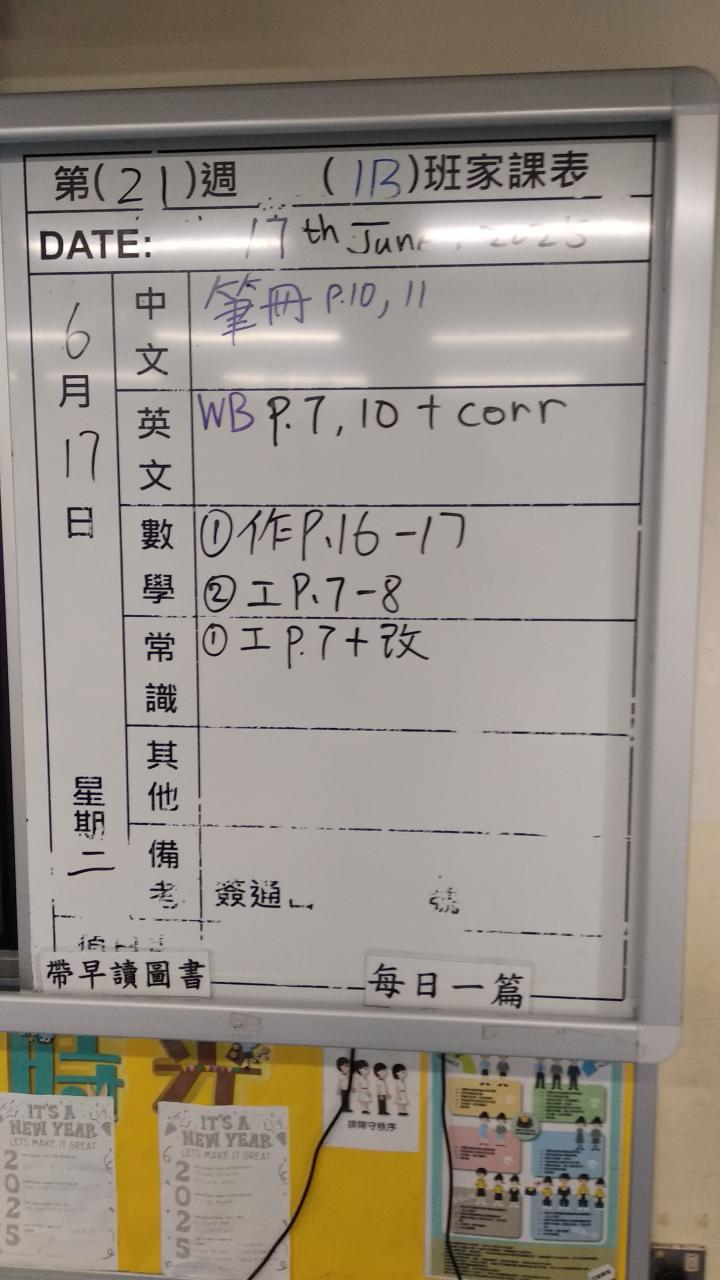 第(21)週 (1B)班家課表
DATE: 17th June, 2025
6月17日
星期二
中文 筆冊 P.10, 11
英文 WB P.7, 10 + corr
數學 ①作P.16-17
②工P.7-8
常識 ①工P.7+改
其他
備考 簽通 號
帶早讀圖書 每日一篇
時
IT'S A NEW YEAR
LET'S MAKE IT GREAT
2025
IT'S A NEW YEAR
LET'S MAKE IT GREAT
2025
排隊守秩序